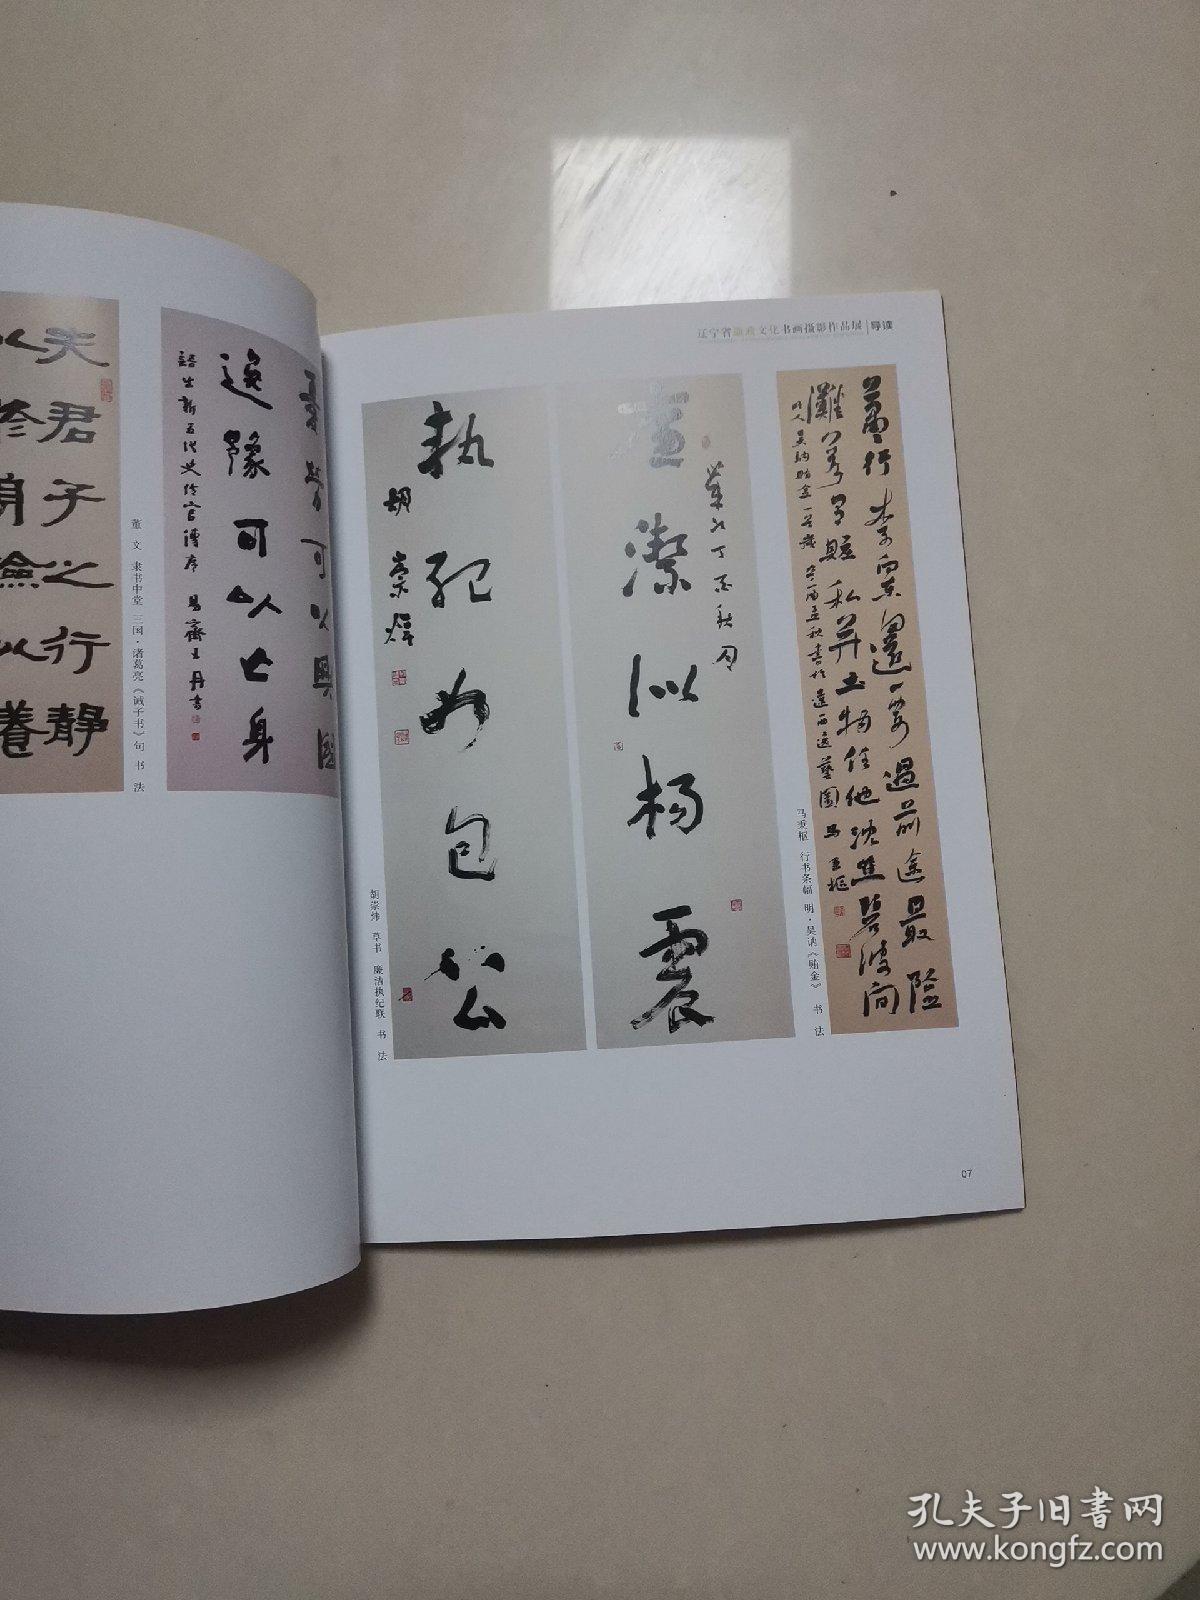 辽宁省廉政文化书画摄影作品展|导读
萧行李向东还要过前途最险
滩若有赃私并土物任他沈在碧波间
马秉枢 行书条幅 明·吴讷《贿金》 书 法
洁似杨震
执纪如包公
胡崇炜
胡崇炜 草书 廉洁执纪联 书 法
忧劳可以兴国
逸豫可以亡身
语出新五代史伶官传序
董 文 隶书中堂 三国·诸葛亮《诫子书》句 书 法
夫君子之行静
以修身俭以养
07
孔夫子旧书网
www.kongfz.com